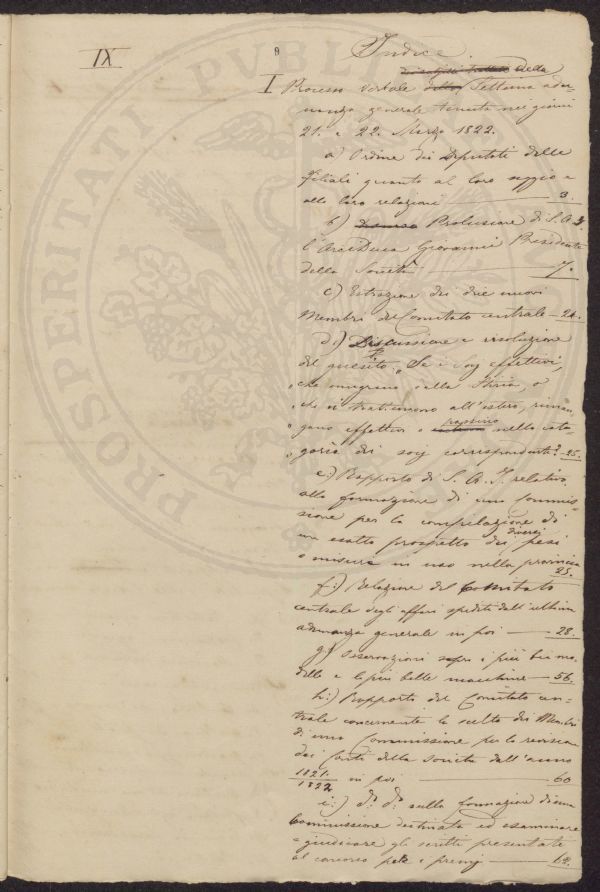 IX
9
Indice
della
I Processo verbale della Settima adu-
nanza generale tenuta nei giorni
21. e 22. Marzo 1822.
a) Ordine dei Deputati delle
filiali quanto al loro seggio e
alle loro relazioni 3.
b) Prolusione di S. A. I.
l'Arciduca Giovanni Presidente
della Società 7.
c) Estrazione dei due nuovi
Membri del Comitato centrale 24.
d) Discussione e risoluzione
del quesito: "Se i Socj effettivi,
"che emigrano dalla Stiria, o
"che si trattengono all'estero, riman-
gano effettivi o passino nella cate-
"goria di socj corrispondenti? 25.
e:) Rapporto di S. A. I. relativo
alla formazione di una commis-
sione per la compilazione di
un esatto prospetto dei diversi pesi
e misure in uso nella provincia
25.
f:) Relazione del Comitato
centrale degli affari spediti dall'ultima
adunanza generale in poi 28.
g:) Osservazioni sopra i più bei mo-
delli e le più belle macchine 56.
h:) Rapporto del Comitato cen-
trale concernente la scelta dei Membri
di una Commissione per la revisione
dei conti della Società dall'anno
1821/1822 in poi 60
i:) d.º d.º sulla formazione di una
Commissione destinata ad esaminare
e giudicare gli scritti presentati
al concorso pei premj 62.
PROSPERITATI PUBLICAE